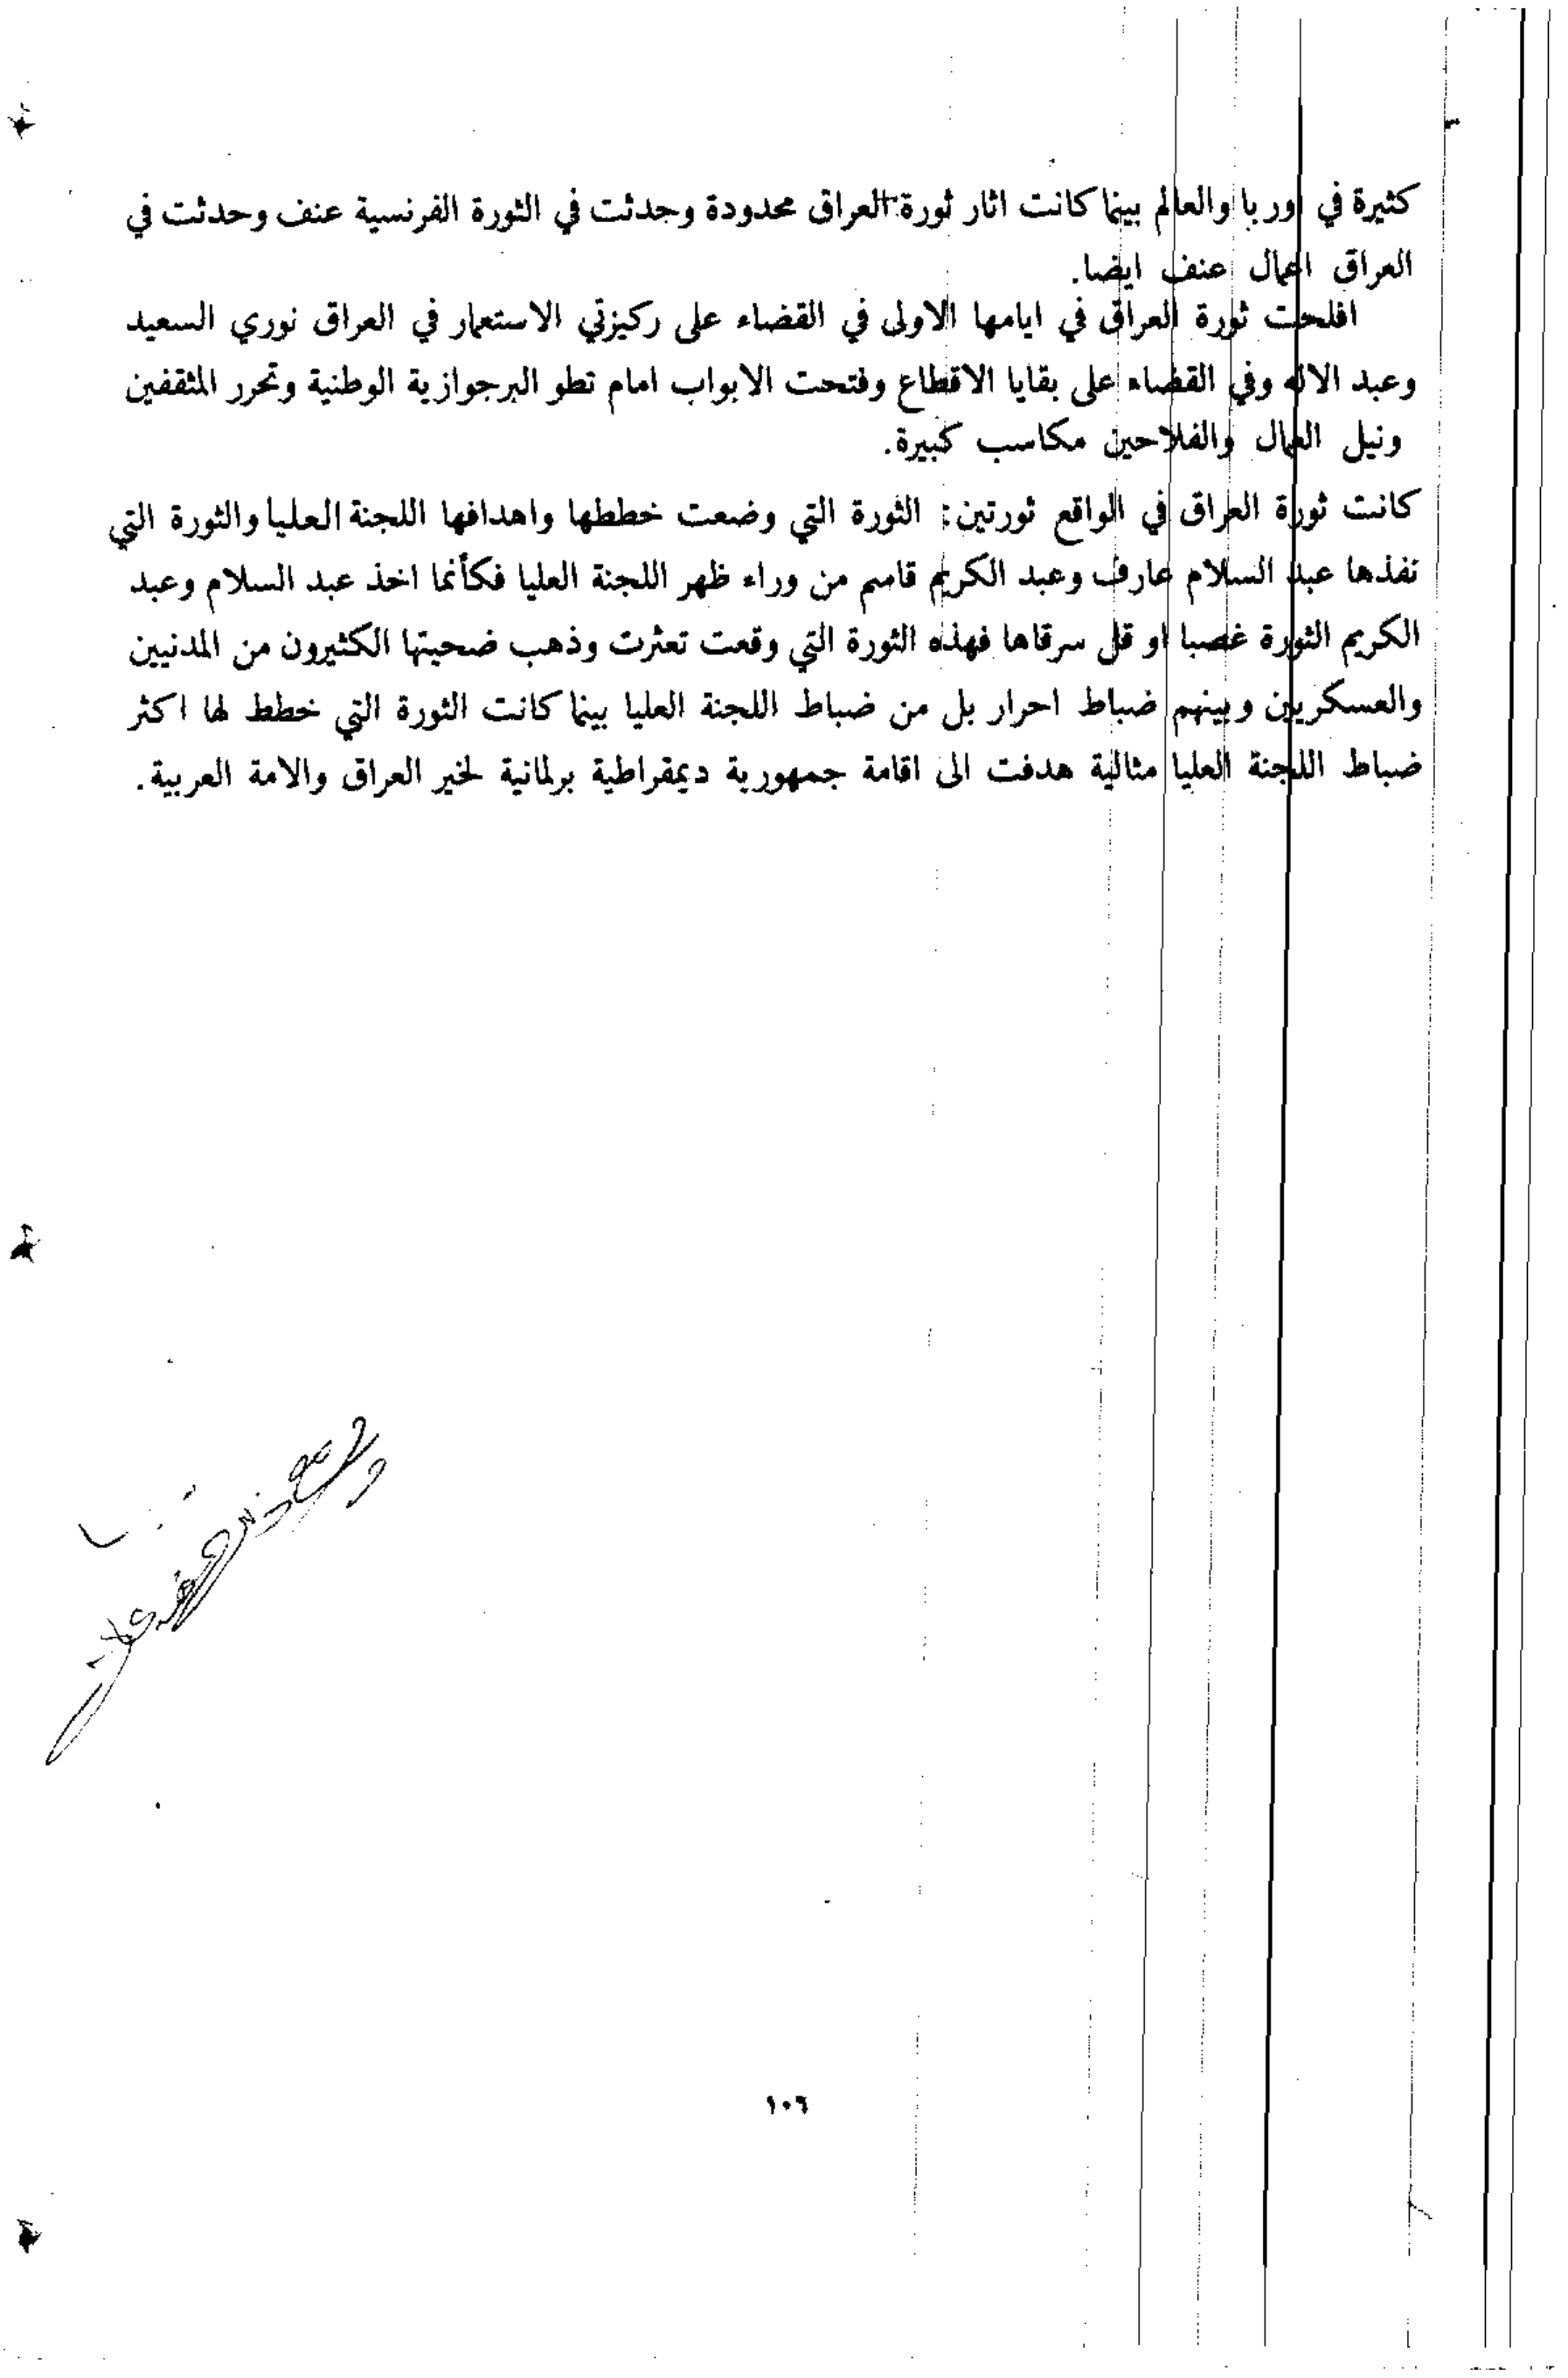 كثيرة في اوربا والعالم بينما كانت اثار ثورة العراق محدودة وجدثت في الثورة الفرنسية عنف وحدثت في
العراق اعمال عنف ايضا.
افلحت ثورة العراق في ايامها الاولى في القضاء على ركيزتي الاستعمار في العراق نوري السعيد
وعبد الاله وفي القضاء على بقايا الاقطاع وفتحت الابواب امام تطو البرجوازية الوطنية وتحرر المثقفين
ونيل العمال والفلاحين مكاسب كبيرة.
كانت ثورة العراق في الواقع ثورتين: الثورة التي وضعت خططها واهدافها اللجنة العليا والثورة التي
نفذها عبد السلام عارف وعبد الكريم قاسم من وراء ظهر اللجنة العليا فكأنما اخذ عبد السلام وعبد
الكريم الثورة غصبا او قل سرقاها فهذه الثورة التي وقعت تعثرت وذهب ضحيتها الكثيرون من المدنيين
والعسكريين وبينهم ضباط احرار بل من ضباط اللجنة العليا بينما كانت الثورة التي خطط لها اكثر
ضباط اللجنة العليا مثالية هدفت الى اقامة جمهورية ديمقراطية برلمانية لخير العراق والامة العربية.
١٠٦